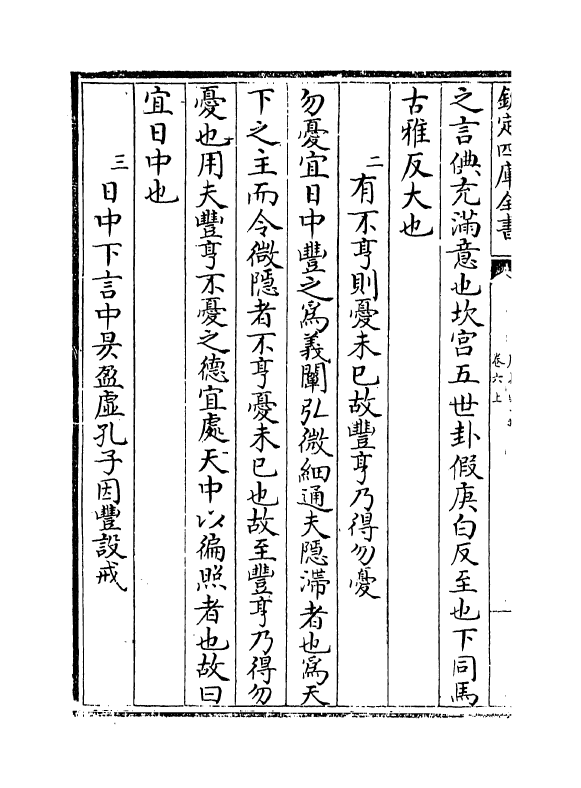 欽定四庫全書
卷六上
之言倎充滿意也坎宮五世卦假庚白反至也下同馬
古雅反大也
二有不亨則憂未已故豐亨乃得勿憂
勿憂宜日中豐之為義闡弘微細通夫隱滯者也為天
下之主而令微隱者不亨憂未已也故至豐亨乃得勿
憂也用夫豐亨不憂之德宜處天中以徧照者也故曰
宜日中也
三日中下言中昃盈虛孔子因豐設戒